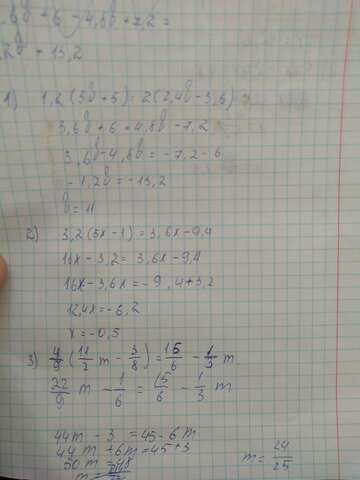 ,6b + 6 - 4,8b + 7,2 =
,2b + 13,2
1) 1,2(3b+5) = 2(2,4b-3,6)
3,6b + 6 = 4,8b - 7,2
3,6b - 4,8b = -7,2 - 6
- 1,2b = -13,2
b = 11
2) 3,2(5x-1) = 3,6x - 9,4
16x - 3,2 = 3,6x - 9,4
16x - 3,6x = -9,4 + 3,2
12,4x = -6,2
x = -0,5
3) 4/9 (11/2 m - 3/8) = 15/6 - 1/3 m
22/9 m - 1/6 = 15/6 - 1/3 m
44m - 3 = 45 - 6m
44m + 6m = 45 + 3
50m = 48
m = 24/25